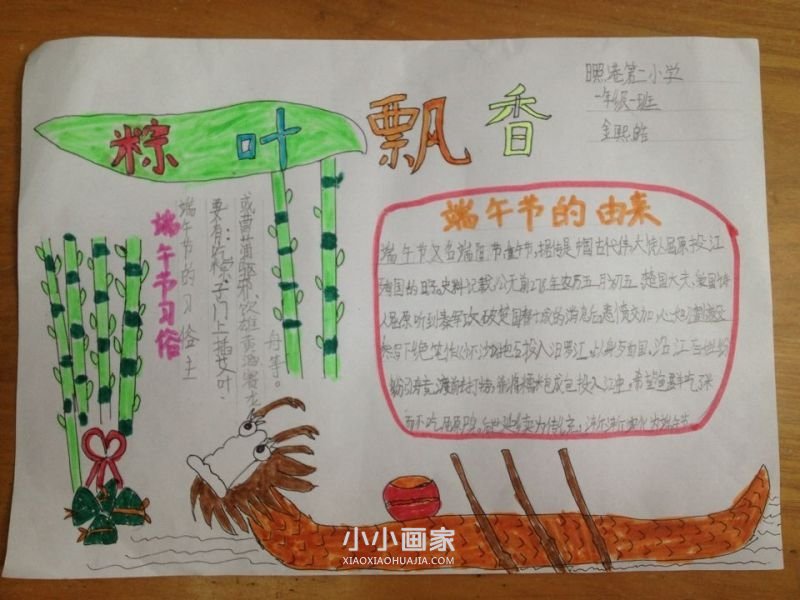 粽叶飘香
日照港第二小学
一年级一班
金熙皓
端午节习俗
端午节的习俗主
要有:吃粽子门上插艾叶、
或菖蒲驱邪、饮雄黄酒赛龙
舟等。
端午节的由来
端午节又名端阳节重午节,据传是中国古代伟大诗人屈原投江
殉国的日子。史料记载公元前278年农历五月初五,楚国大夫、爱国诗
人屈原听到秦军攻破楚国都城的消息后,悲愤交加,心如刀割
写下绝笔作《怀沙》抱石投入汨罗江,以身殉国,沿江百姓纷
纷引舟竞渡前去打捞,并将糯米包成包投入江中,希望鱼虾吃了米
而不吃屈原
小小画家
XIAOXIAOHUAJIA.COM